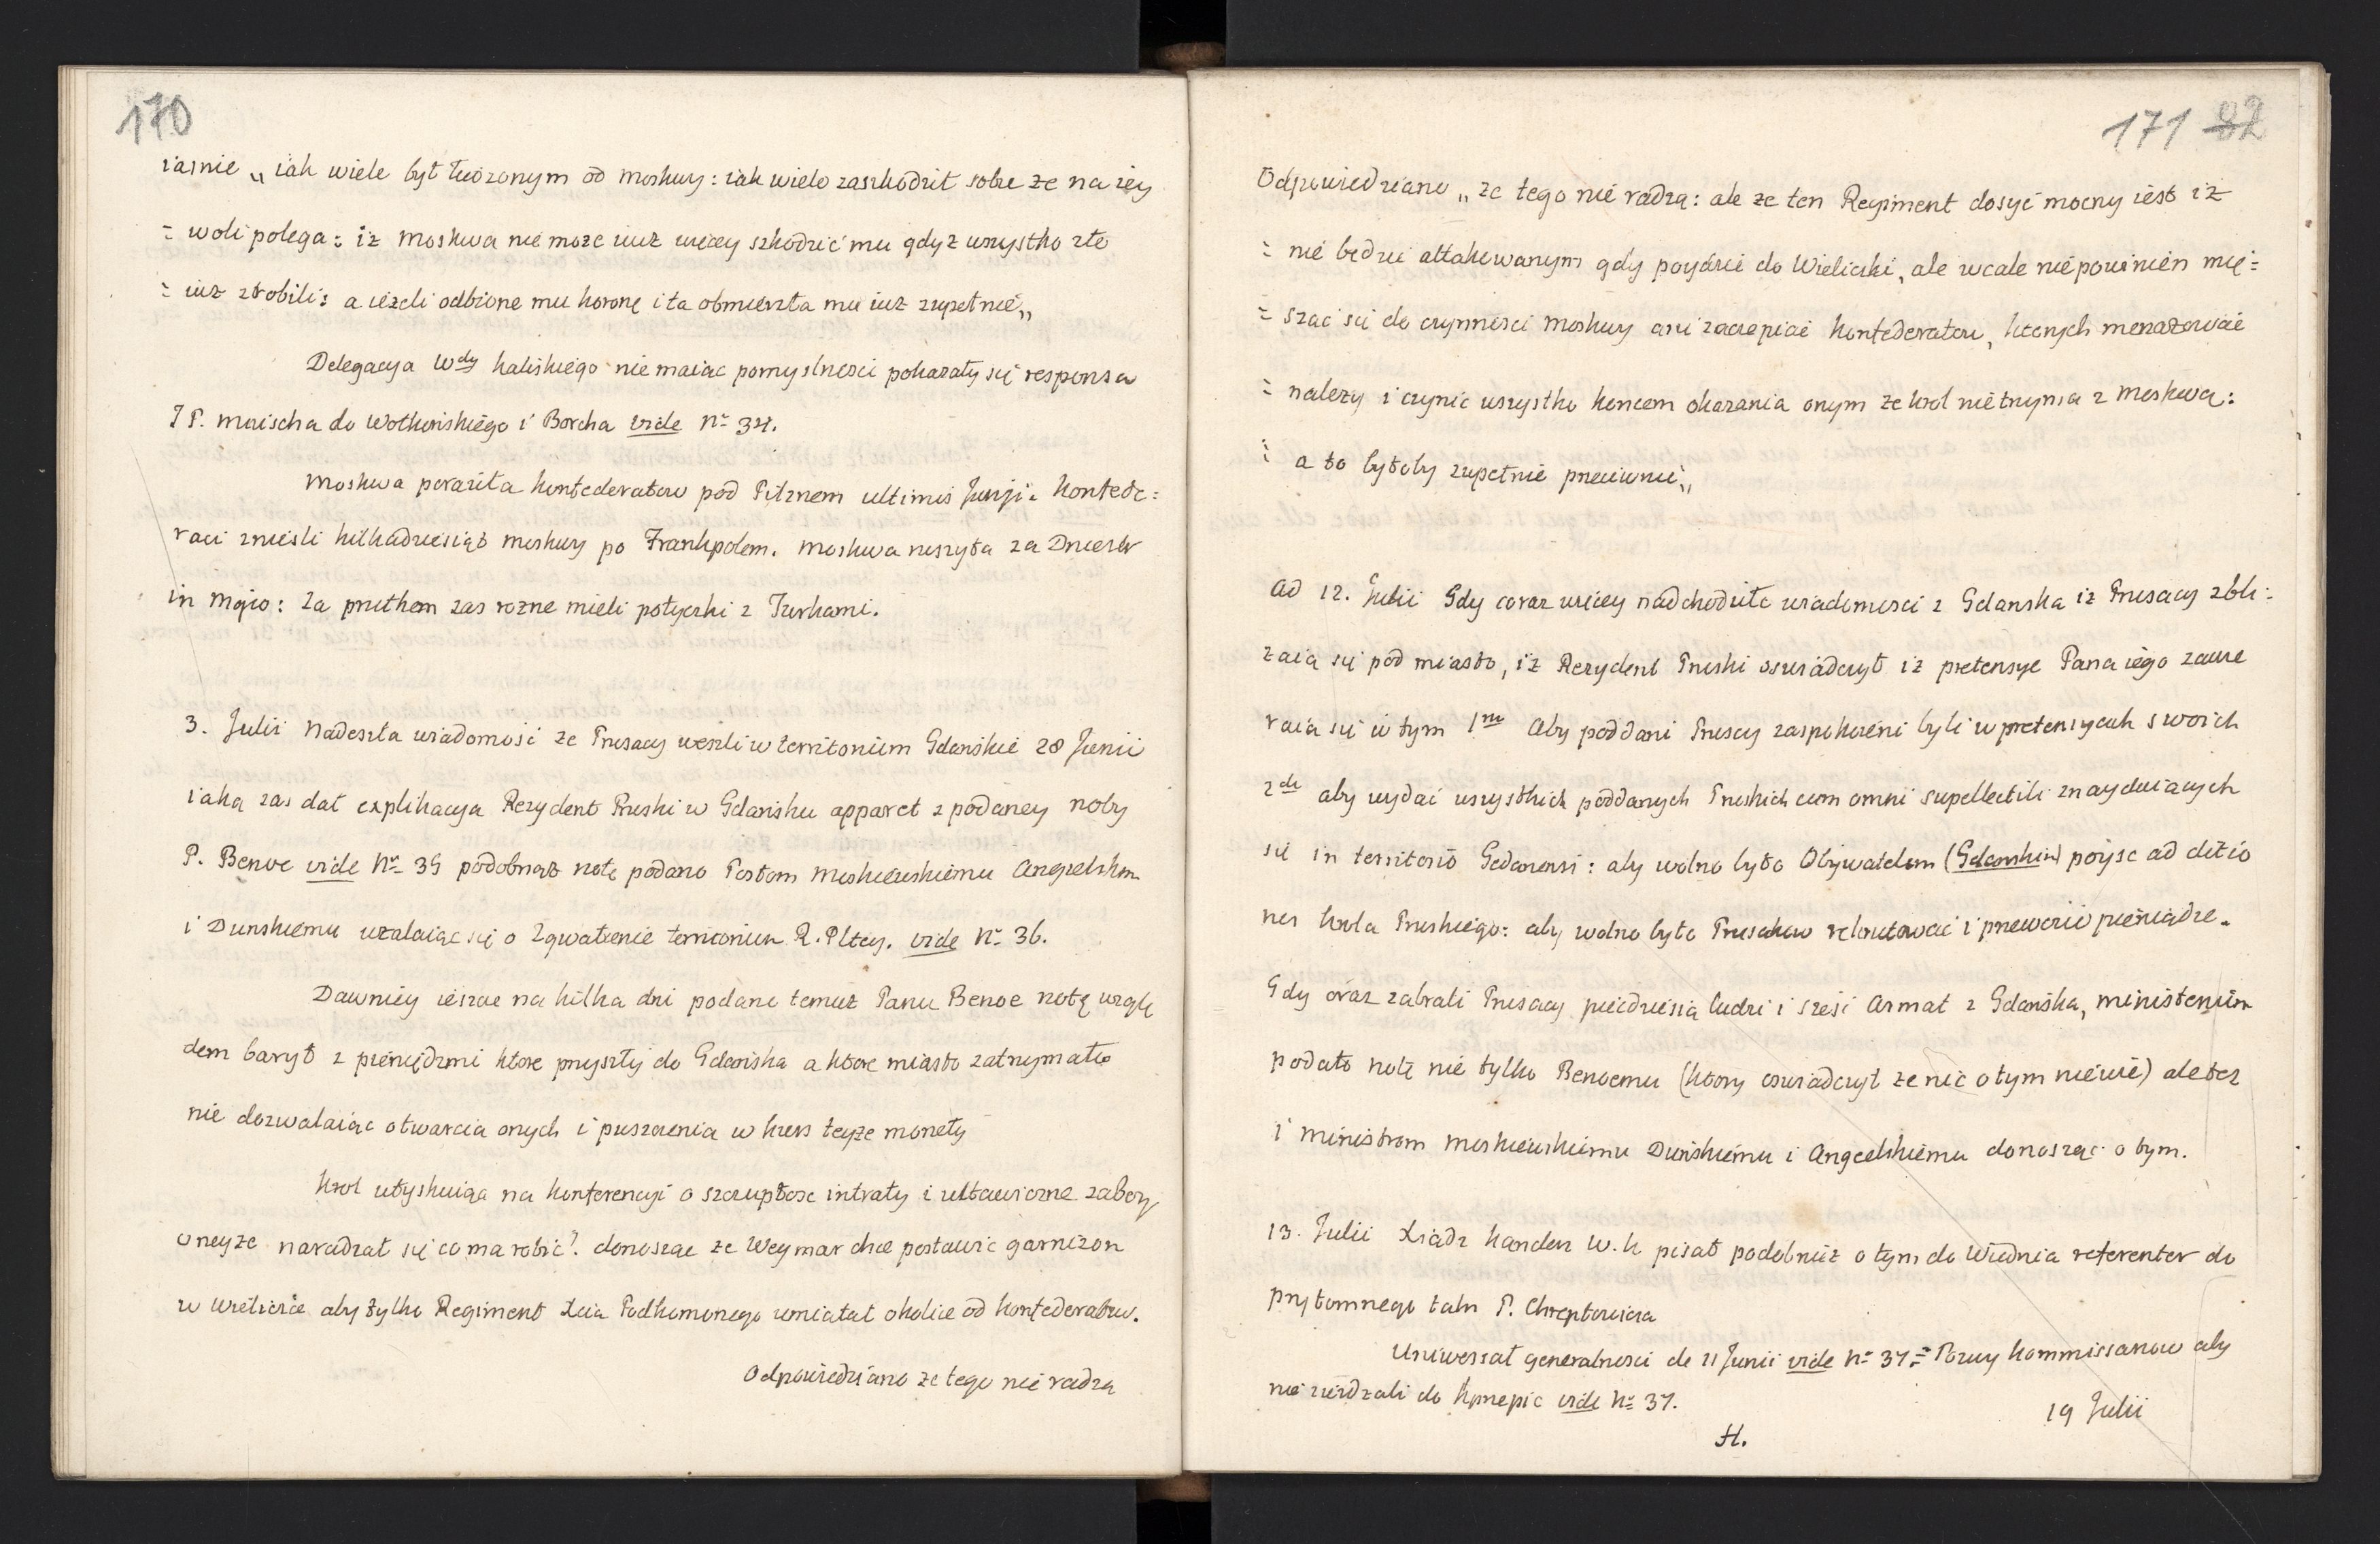 170
iasnie „ iak wiele był łudzonym od moskwy: iak wiele zaszkodził sobie ze na iey
= woli polega: iz Moskwa nie moze iuz więcey szkodzić mu gdyz wszystko złe
= iuz zrobili: a iezeli odbione mu koronę i ta obmierzła mu iuz zupełnie„
Delegacya Wdy kaliskiego nie maiac pomyslnosci pokazały się responsa
JP. mnischa do Wołkonskiego i Borcha vide No 34.
Moskwa poraziła konfederatow pod Pilznem ultimis Junji. Konfede=
raci znieśli kilkadziesiąt moskwy po Frankpolem. Moskwa ruszyła za Dniestr
in Majo: za pruthem zas rozne mieli potyczki z Turkami.
3. Julii Nadeszła wiadomość ze Prusacy weszli w territorium Gdańskie 28 Junii
iaką zas dał explikacya Rezydent Pruski w Gdańsku apparet z podaney noty
P. Benoe vide No 35 podobnąz notę podano Posłom Moskiewskiemu Angielskm
i Dunskiemu uzalaiąc się o zgwałcenie territorium R. Pltey. vide No 36.
Dawniey ieszcze na kilka dni podano temuz Panu Benoe notę wzglę
dem barył z pieniędzmi ktore przyszły do Gdańska a ktore miasto zatrzymało
nie dozwalaiąc otwarcia onych i puszczenia w kurs teyze monety
Krol utyskuiąc na konferencyi o szczupłosc intraty i ustawiczne zabory
oneyze naradzał się co ma robić? donosząc ze Weymar chce postawić garnizon
w wieliczce aby tylko Regiment Xcia Podkomorzego umiatał okolice od konfederatow.
Odpowiedziano ze tego nie radzą
171 82
Odpowiedziano „ ze tego nie radzą: ale ze ten Regiment dosyć mocny iest iz
= nie będzie attakowanym gdy poydzie do Wieliczki, ale wcale nie powinien mię=
= szać się do czynnosci moskwy ani zaczepiać konfederatow, ktorych menazować
= nalezy i czynić wszystko koncem okazania onym ze krol nie trzyma z Moskwą:
= a to byłoby zupełnie przeciwnie„
Ad 12. Julii Gdy coraz więcey nadchodziło wiadomosci z Gdanska iz Prusacy zbli=
zaią się pod miasto, iz Rezydent Pruski oswiadczył iz pretensye Pana iego zawie
raią się w tym 1mo Aby poddani Pruscy zaspokoieni byli w pretensyach swoich
2do aby wydać wszystkich poddanych Pruskich cum omni supellectili znayduiących
się in territorio Gedanensi: aby wolno było Obywatelom (Gdanskim) poyść ad ditio
nes krola Pruskiego: aby wolno było Prusakow rekrutować i przewozić pieniądze.
Gdy oraz zabrali Prusacy pięcdziesią ludzi i sześć Armat z Gdańska, ministerium
podało notę nie tylko Benoemu (ktory oswiadczył ze nic o tym nie wie) ale tez
i ministrom moskiewskiemu Duńskiemu i Angielskiemu donosząc o tym.
13. Julii Xiądz kanclerz W.k pisał podobniez o tym do Wiednia referenter do
przytomnego tam P. Chreptowicza
Uniwersał generalnosci de 11 Junii vide No 37.= Pozwy kommissarzow aby
nie ziezdzali do krzepic vide No 37.
19 Julii
H.